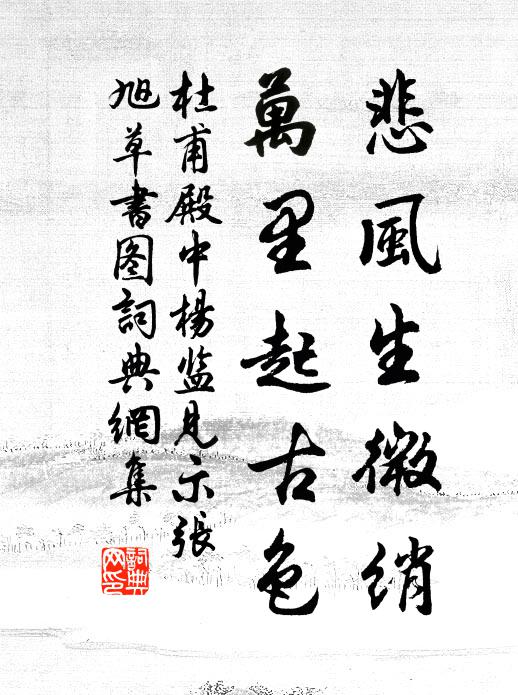 悲風生微綃
萬里起古色
杜甫殿中楊监見示張
旭草書图詞典網集
詞典
网印